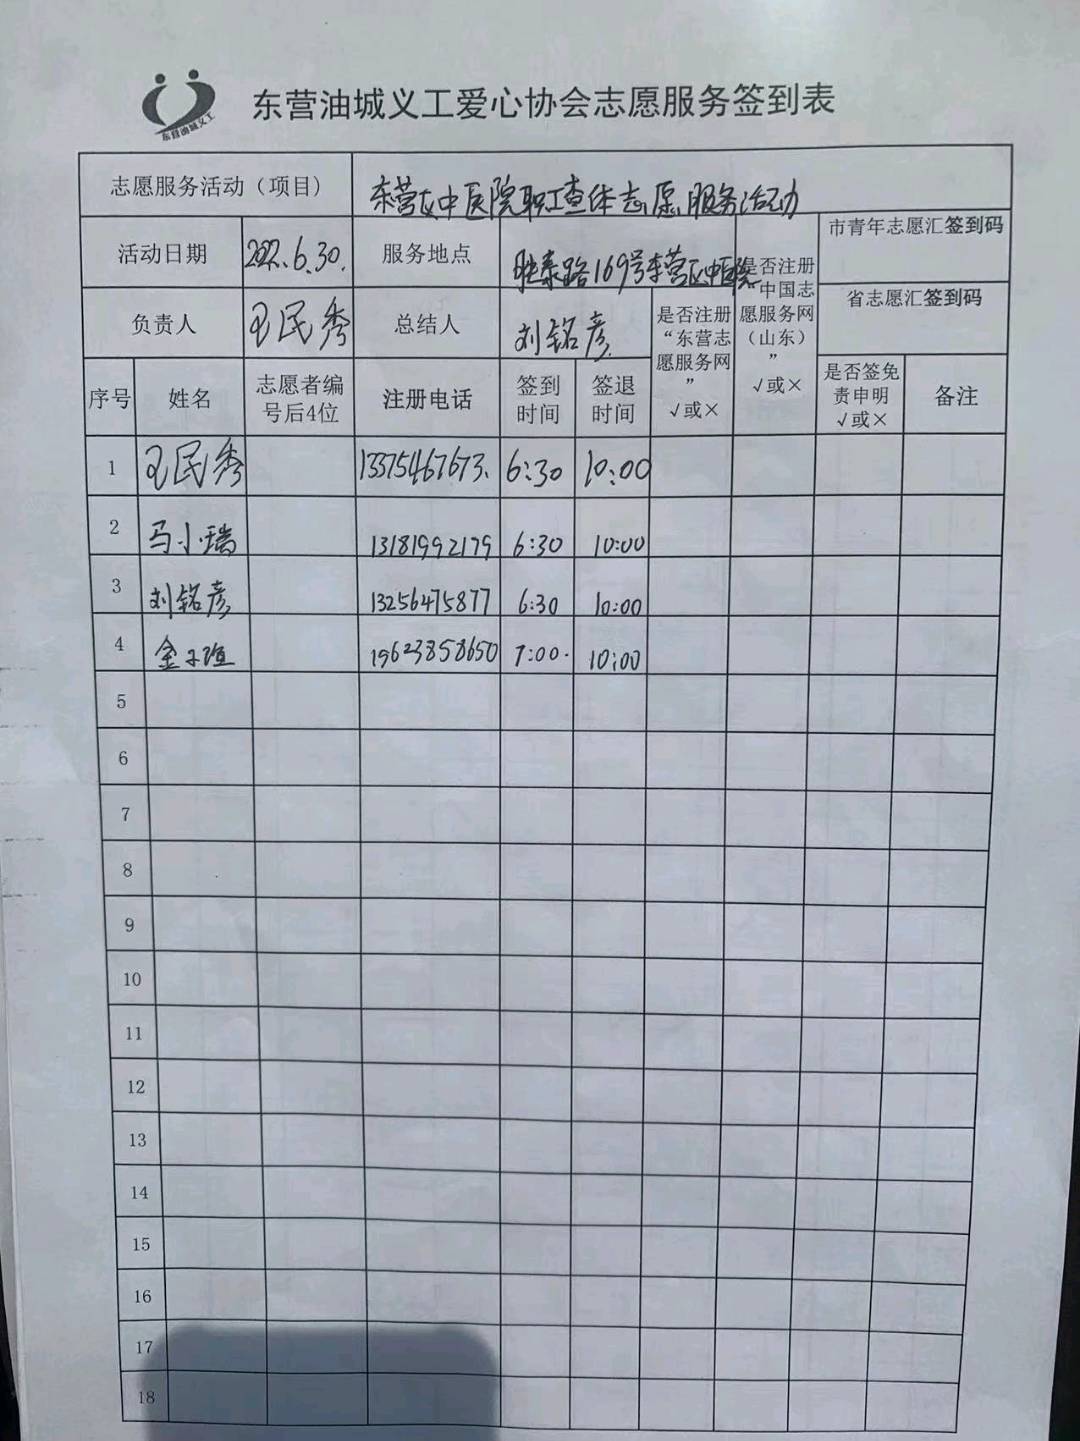 东营油城义工
东营油城义工爱心协会志愿服务签到表
志愿服务活动（项目） 东营区中医院职工查体志愿服务活动
活动日期 2022.6.30. 服务地点 胜泰路169号东营区中医院
是否注册“中国志愿服务网（山东）” √或×
市青年志愿汇签到码
省志愿汇签到码
负责人 王民秀 总结人 刘铭彦
是否注册“东营志愿服务网” √或×
序号 姓名 志愿者编号后4位 注册电话 签到时间 签退时间 是否签免责申明 √或× 备注
1 王民秀 13375467673. 6:30 10:00
2 马小瑞 13181992179 6:30 10:00
3 刘铭彦 13256475877 6:30 10:00
4 金 19623858650 7:00. 10:00
5
6
7
8
9
10
11
12
13
14
15
16
17
18